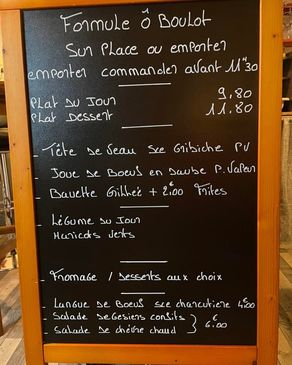 Formule Ô Boulot
Sur Place ou emporter
emporter commander avant 11H30
Plat du Jour 9,80
Plat Dessert 11.80
- Tête de Veau sce Gribiche PV
Joue de Boeuf en Daube P.Vapeur
- Bavette Grillée + 2€00 Frites
- Légume du Jour
Haricots Verts
- Fromage / Desserts aux choix
- Langue de Boeuf sce charcutière 4€00
- Salade de Gesiers confits
- Salade de chèvre chaud } 6€00